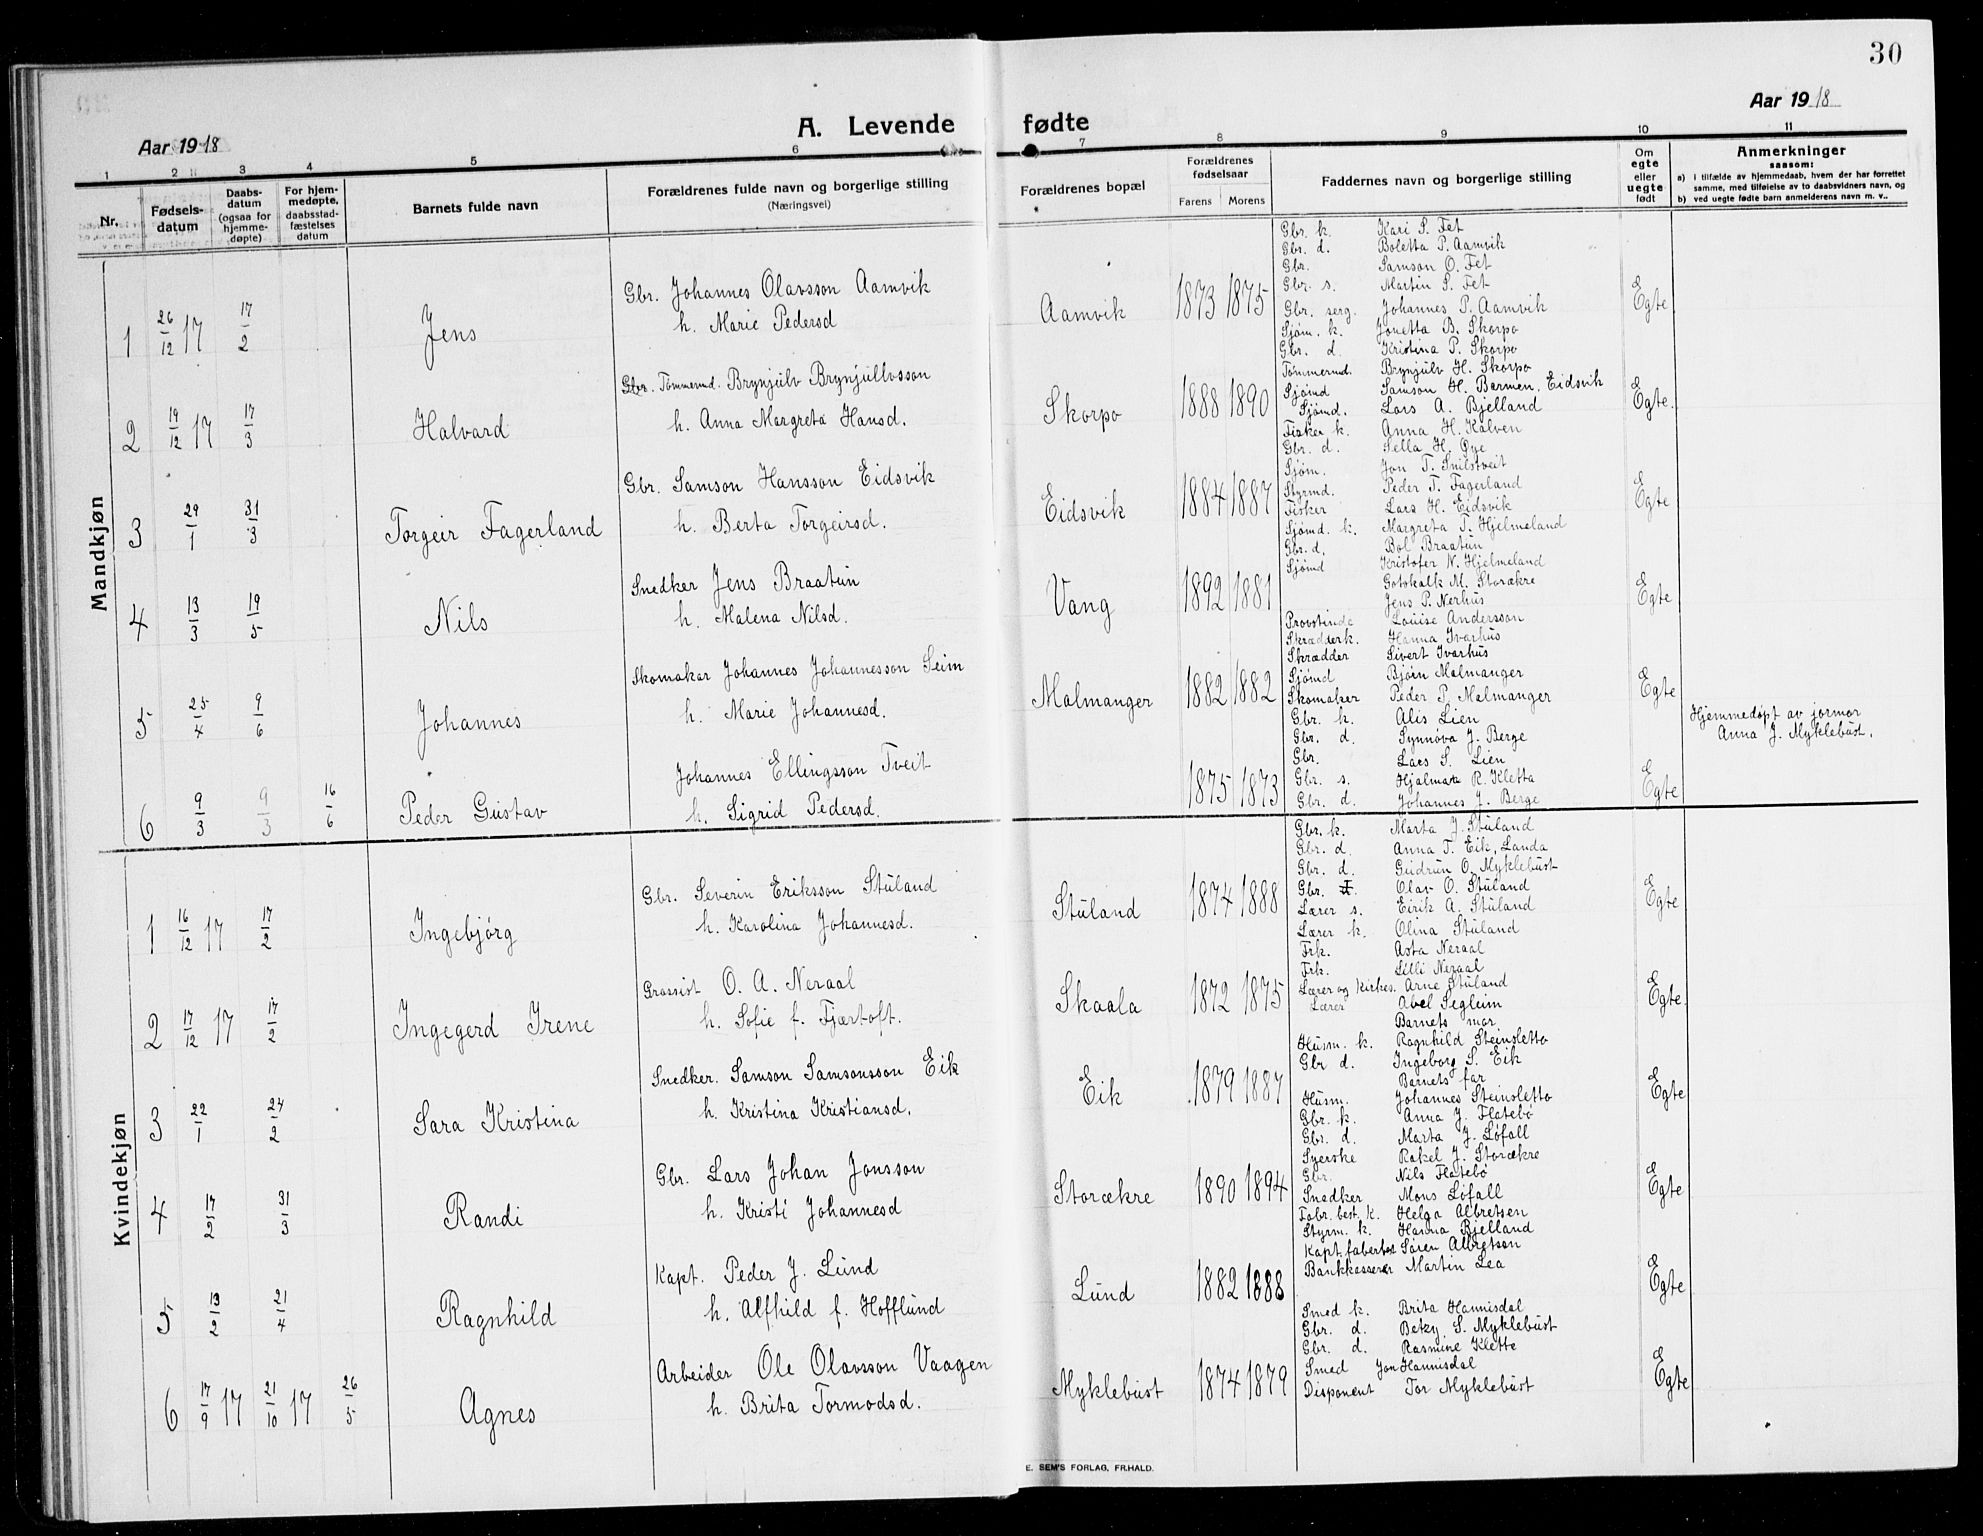 30
A. Levende fødte
Aar 1918
Aar 1918
1 2 3 4 5 6 7 8 9 10 11
Nr.
Fødsels-
datum
Daabs-
datum
(ogsaa for
hjemme-
døpte)
For hjem-
medøpte,
daabsstad-
fæstelses
datum
Barnets fulde navn
Forældrenes fulde navn og borgerlige stilling
(Næringsvei)
Forældrenes bopæl
Forældrenes
fødselsaar
Farens Morens
Faddernes navn og borgerlige stilling
Om
egte
eller
uegte
født
Anmerkninger
saasom:
a) i tilfælde av hjemmedaab, hvem der har forrettet
samme, med tilføielse av to daabsvidners navn, og
b) ved uegte fødte barn anmelderens navn m. v..
Mandkjøn
1 26/12 17 17/2 Jens
Gbr. Johannes Olavsson Aamvik
h. Marie Pedersd
Aamvik 1873 1875
Gbr. k. Kari S. Fet
Gbr. d. Boletta P. Aamvik
Gbr. Samson O. Fet
Gbr. s. Martin S. Fet
Gbr. serg. Johannes P. Aamvik
Egte
2 19/12 17 17/3 Halvard
Gbr. Tømmermd. Brynjulv Brynjullvsson
h. Anna Margreta Hansd.
Skorpo 1888 1890
Sjøm. k. Jonetta B. Skorpo
Gbr. d. Kristina P. Skorpo
Tømmermd. Brynjulv H. Skorpo
Sjømd Samson H. Bermen, Eidsvik
Sjømd. Lars A. Bjelland
Egte.
3 29/1 31/3 Torgeir Fagerland
Gbr. Samson Hansson Eidsvik
h. Berta Torgeirsd.
Eidsvik 1884 1887
Fisker k. Anna H. Kalven
Gbr. d. Sella H. Øye
Sjøm. Jon T. Snilstveit
Styrmd. Peder T. Fagerland
Fisker Lars H. Eidsvik
Egte
4 13/3 19/5 Nils
Snedker Jens Braatun
h. Malena Nilsd.
Vang 1892 1881
Sjømd. k. Margreta T. Hjelmeland
Gbr. d. Bol Braatun
Sjømd Kristofer N. Hjelmeland
Gotskalk M. Storækre
Jens P. Nerhus
Egte
5 25/4 9/6 Johannes
Skomakar Johannes Johannesson Seim
h. Marie Johannesd.
Malmanger 1882 1882
Provstinde Louise Andersson
Skrædderk. Hanna Ivarhus
Skrædder Sivert Ivarhus
Sjømd Bjørn Malmanger
Skomaker Peder P. Malmanger
Egte
6 9/3 9/3 16/6 Peder Gustav
Johannes Ellingsson Tveit
h. Sigrid Pedersd.
1875 1873
Gbr. k. Alis Lien
Gbr. d. Synnøva J. Berge
Gbr. Lars S. Lien
Gbr. s. Hjalmar R. Kletta
Gbr. d. Johannes J. Berge
Egte
Hjemmedøpt av jormor
Anna J. Myklebust.
Kvindekjøn
1 16/12 17 17/2 Ingebjørg
Gbr. Severin Eriksson Stuland
h. Karolina Johannesd.
Stuland 1874 1888
Gbr. k. Marta J. Stuland
Gbr. d. Anna T. Eik, Landa
Gbr. d. Gudrun O. Myklebust
Gbr. Olav O. Stuland
Lærer s. Eirik A. Stuland
Egte
2 17/12 17 17/2 Ingegerd Irene
Grossist O. A. Neraal
h. Sofie f. Fjærtoft.
Skaala 1872 1875
Lærer k. Olina Stuland
Frk. Asta Neraal
Frk. Lilli Neraal
Lærer og kirkes. Arne Stuland
Lærer Abel Segleim
Egte.
3 22/1 24/2 Sara Kristina
Snedker. Samson Samsonsson Eik
h. Kristina Kristiansd.
Eik 1879 1887
Barnets mor
Husm. k. Ragnhild Steinsletto
Gbr d. Ingeborg S. Eik
Barnets far
Husm. Johannes Steinsletto
Egte
4 17/2 31/3 Randi
Gbr. Lars Johan Jonsson
h. Kristi Johannesd
Storækre 1890 1894
Gbr. k. Anna J. Flatebø
Gbr. d. Marta J. Løfall
Syerske Rakel J. Storækre
Gbr. Nils Flatebø
Snedker Mons Løfall
Egte
5 13/2 21/4 Ragnhild
Kapt. Peder J. Lund
h. Alfhild f. Hofflund
Lund 1882 1888
Fabr. best. k. Helga Albretsen
Styrm. k. Hanna Bjelland
Kapt. Søren Albretson
Bankkasserer Martin Lea
Egte
6 17/9 17 21/10 17 26/5 Agnes
Arbeider Ole Olavsson Vaagen
h. Brita Tormodsd.
Myklebust 1874 1879
Smed k. Brita Hannisdal
Gbr. d. Betzy, S. Myklebust
Gbr. d. Rasmine Klette
Smed Jon Hannisdal
Disponent Tor Myklebust
Egte
E. SEM'S FORLAG, FR.HALD.